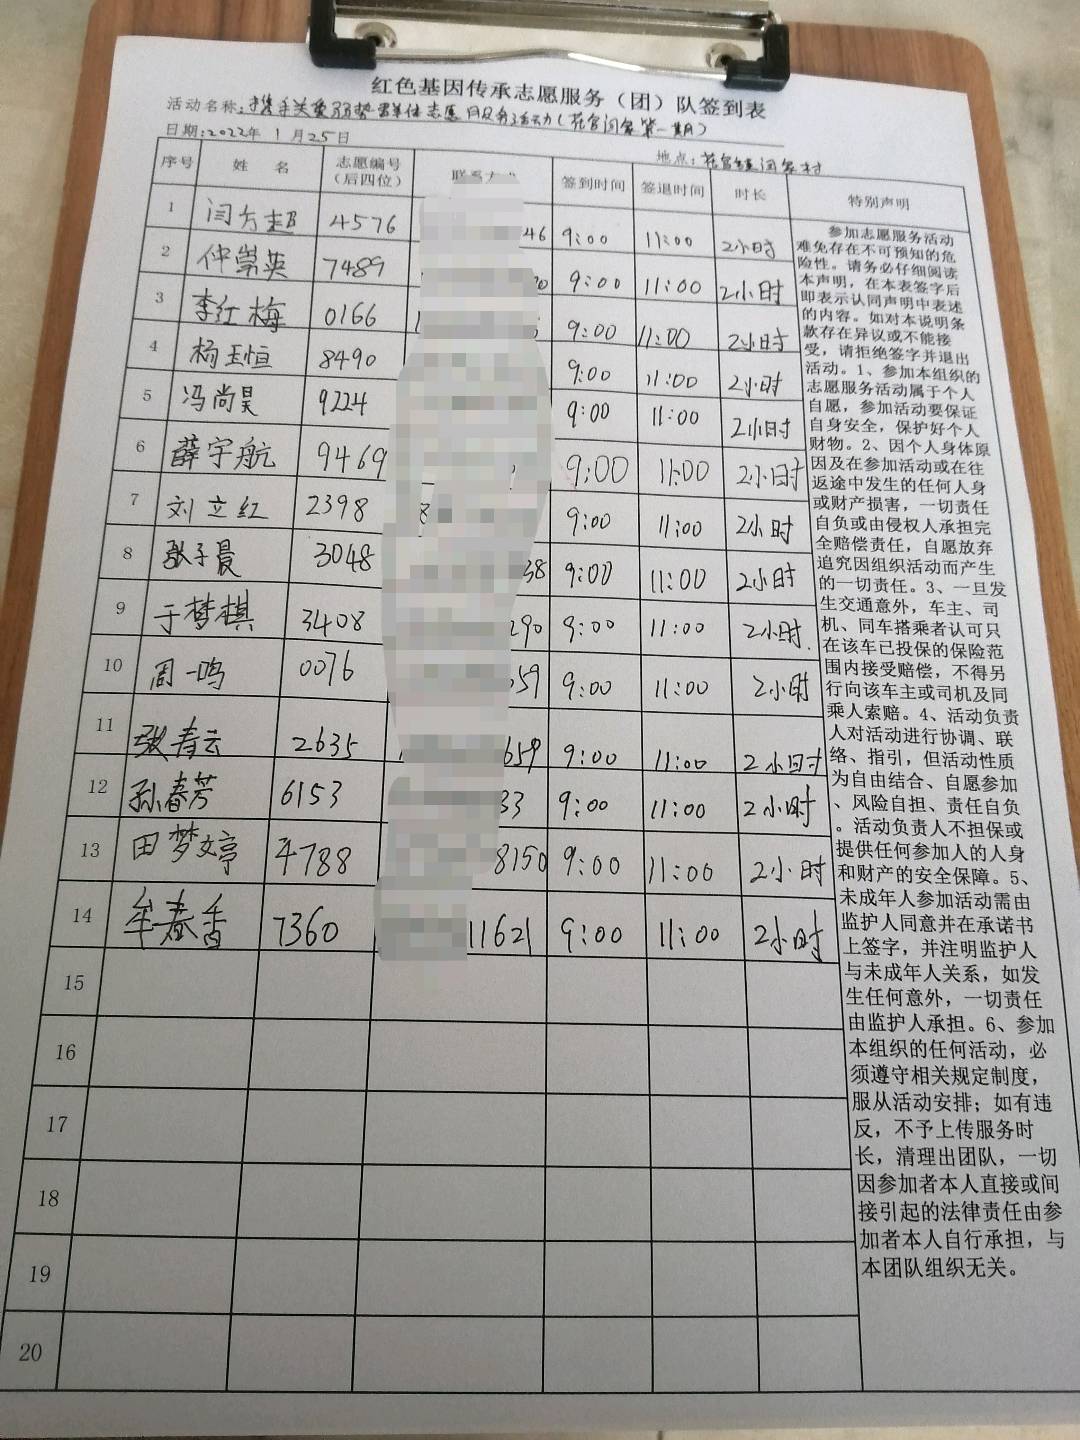 红色基因传承志愿服务（团）队签到表
活动名称：携手关爱弱势群体志愿服务活动（花官闫家第一期）
日期：2022年1月25日
地点：花官镇闫家村
序号 姓名 志愿编号（后四位） 联系方式 签到时间 签退时间 时长 特别声明
1 闫方超 4576 46 9:00 11:00 2小时
2 仲崇英 7489 9:00 11:00 2小时
3 李红梅 0166 9:00 11:00 2小时
4 杨玉恒 8490 9:00 11:00 2小时
5 冯尚昊 9224 9:00 11:00 2小时
6 薛宇航 9469 9:00 11:00 2小时
7 刘立红 2398 9:00 11:00 2小时
8 张子晨 3048 38 9:00 11:00 2小时
9 于梦棋 3408 290 9:00 11:00 2小时
10 周一鸣 0076 659 9:00 11:00 2小时
11 张春云 2635 659 9:00 11:00 2小时
12 孙春芳 6153 33 9:00 11:00 2小时
13 田梦婷 4788 8150 9:00 11:00 2小时
14 牟春香 7360 11621 9:00 11:00 2小时
15
16
17
18
19
20
参加志愿服务活动
难免存在不可预知的危
险性。请务必仔细阅读
本声明，在本表签字后
即表示认同声明中表述
的内容。如对本说明条
款存在异议或不能接
受，请拒绝签字并退出
活动。1、参加本组织的
志愿服务活动属于个人
自愿，参加活动要保证
自身安全，保护好个人
财物。2、因个人身体原
因及在参加活动或在往
返途中发生的任何人身
或财产损害，一切责任
自负或由侵权人承担完
全赔偿责任，自愿放弃
追究因组织活动而产生
的一切责任。3、一旦发
生交通意外，车主、司
机、同车搭乘者认可只
在该车已投保的保险范
围内接受赔偿，不得另
行向该车主或司机及同
乘人索赔。4、活动负责
人对活动进行协调、联
络、指引，但活动性质
为自由结合、自愿参加
、风险自担、责任自负
。活动负责人不担保或
提供任何参加人的人身
和财产的安全保障。5、
未成年人参加活动需由
监护人同意并在承诺书
上签字，并注明监护人
与未成年人关系，如发
生任何意外，一切责任
由监护人承担。6、参加
本组织的任何活动，必
须遵守相关规定制度，
服从活动安排；如有违
反，不予上传服务时
长，清理出团队，一切
因参加者本人直接或间
接引起的法律责任由参
加者本人自行承担，与
本团队组织无关。